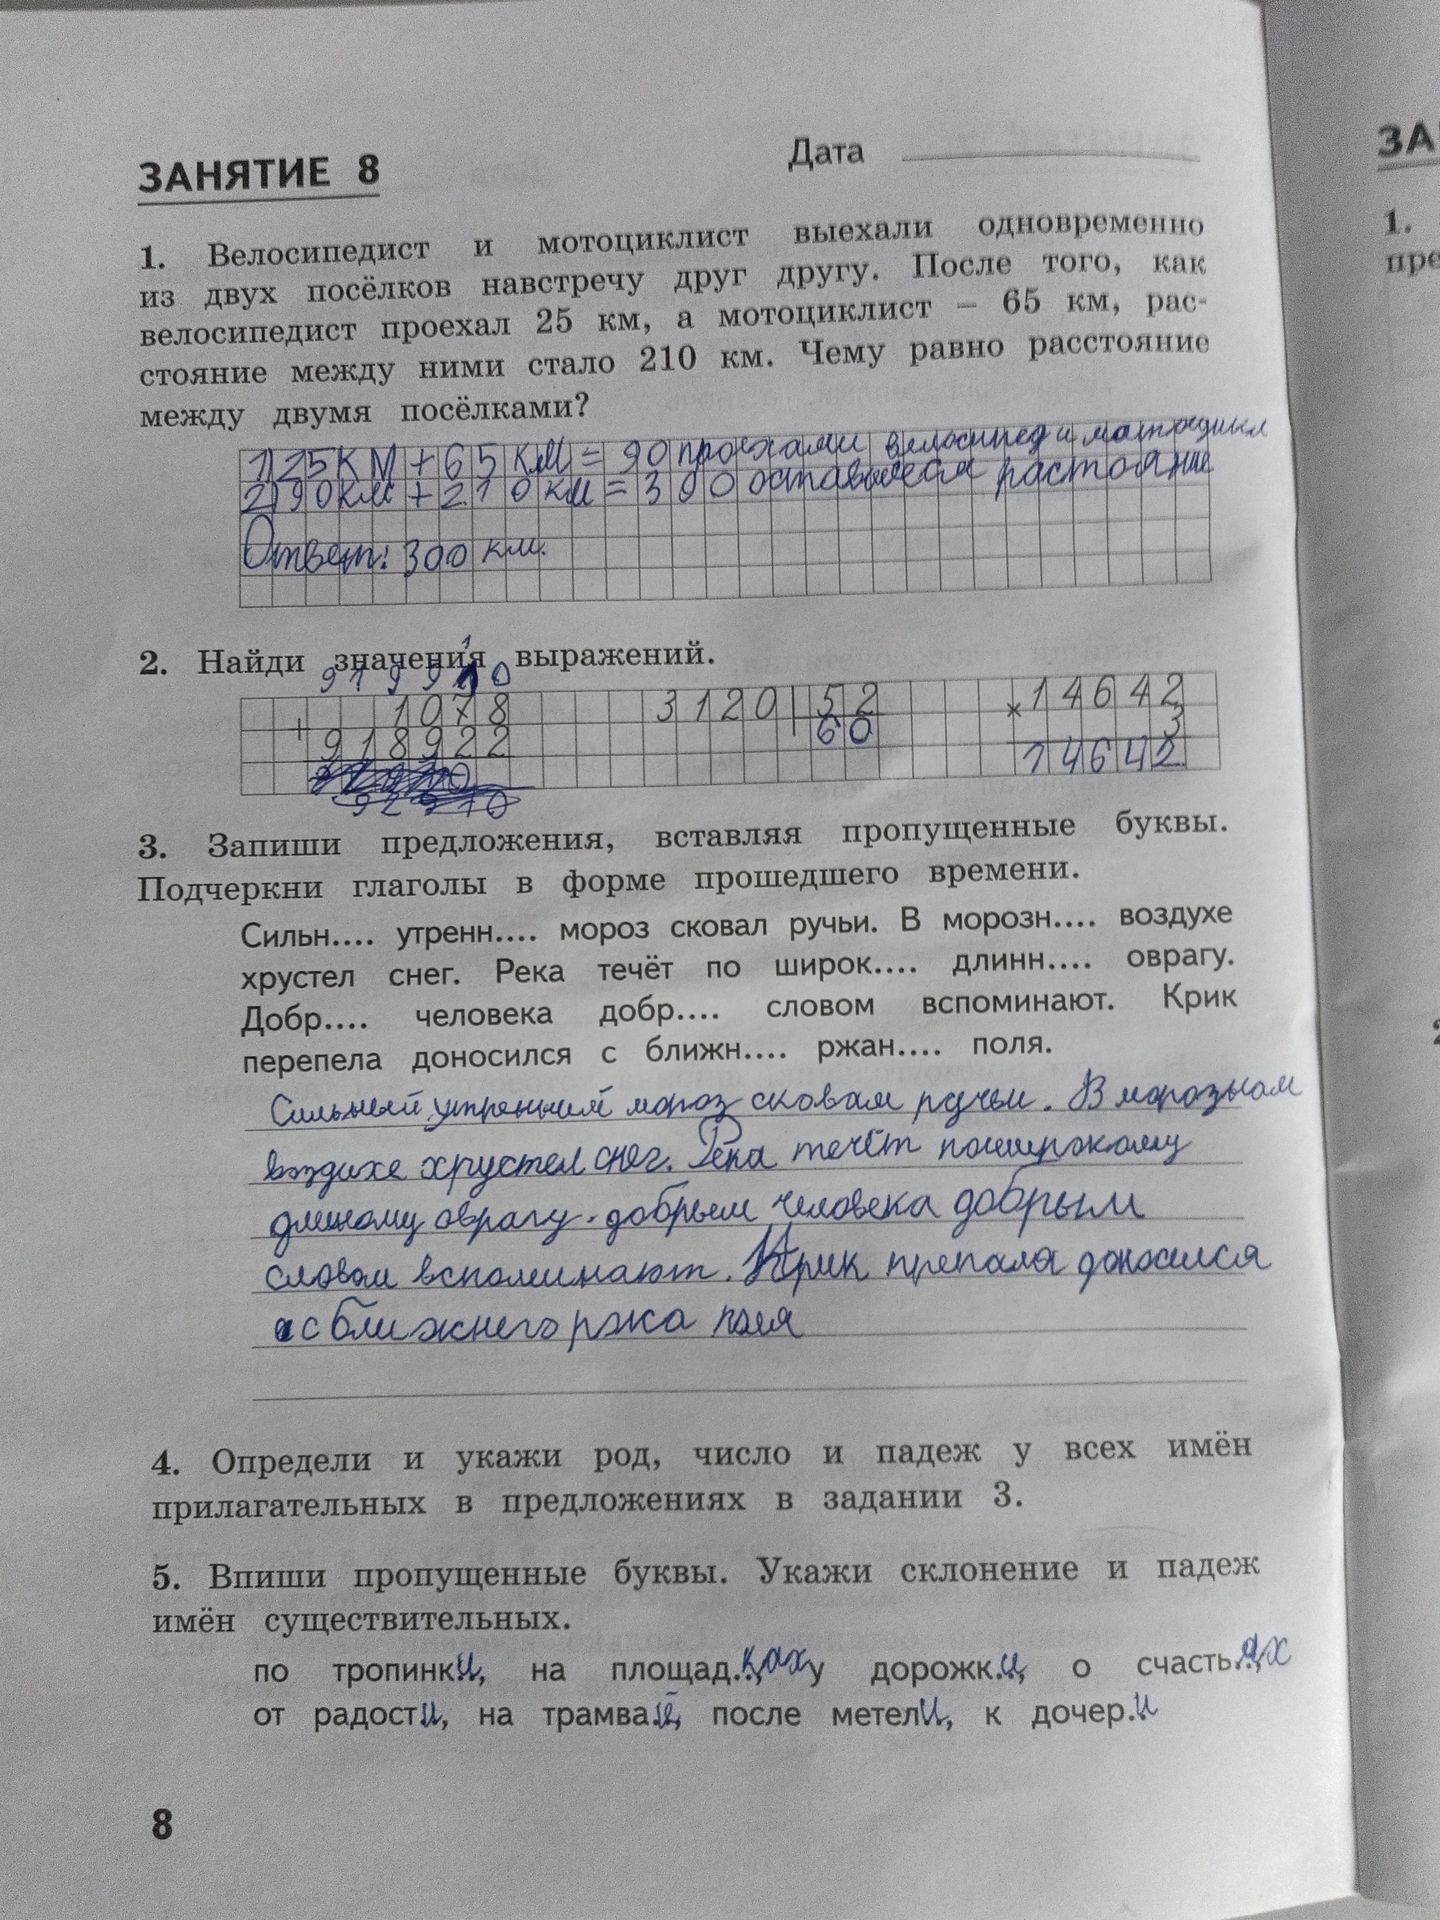 ЗАНЯТИЕ 8
Дата
1. Велосипедист и мотоциклист выехали одновременно
из двух посёлков навстречу друг другу. После того, как
велосипедист проехал 25 км, а мотоциклист – 65 км, рас-
стояние между ними стало 210 км. Чему равно расстояние
между двумя посёлками?
1) 25 км + 65 км = 90 проехали велосипед и
2) 90 км + 210 км = 300 растояние
Ответ: 300 км.
2. Найди значения выражений.
1
9 1 9 9 0
1078
+
918922
3120 52
60
× 14642
3
14642
3. Запиши предложения, вставляя пропущенные буквы.
Подчеркни глаголы в форме прошедшего времени.
Сильн.... утренн.... мороз сковал ручьи. В морозн.... воздухе
хрустел снег. Река течёт по широк.... длинн.... оврагу.
Добр.... человека добр.... словом вспоминают. Крик
перепела доносился с ближн.... ржан.... поля.
Сильный утренний мороз сковал ручьи. В морозном
воздихе хрустел снег. Река течёт по
длиному оврагу. добрым человека добрым
словом вспоминают. Крик препала доносился
с ближнего ржа поля
4. Определи и укажи род, число и падеж у всех имён
прилагательных в предложениях в задании 3.
5. Впиши пропущенные буквы. Укажи склонение и падеж
имён существительных.
по тропинки, на площад..цах у дорожк..и, о счасть..ях
от радости, на трамва..й, после метели, к дочер..и
8
ЗА
1.
пре